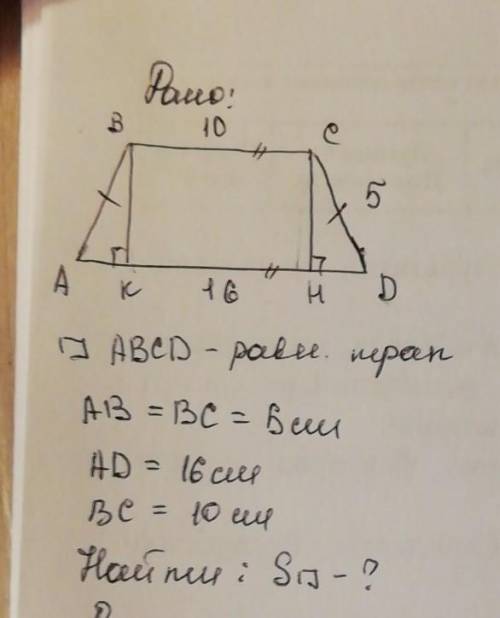 Дано:
B 10 C
5
A K 16 H D
ABCD - равн. трап
AB = BC = 5 см
AD = 16 см
BC = 10 см
Найти: S - ?